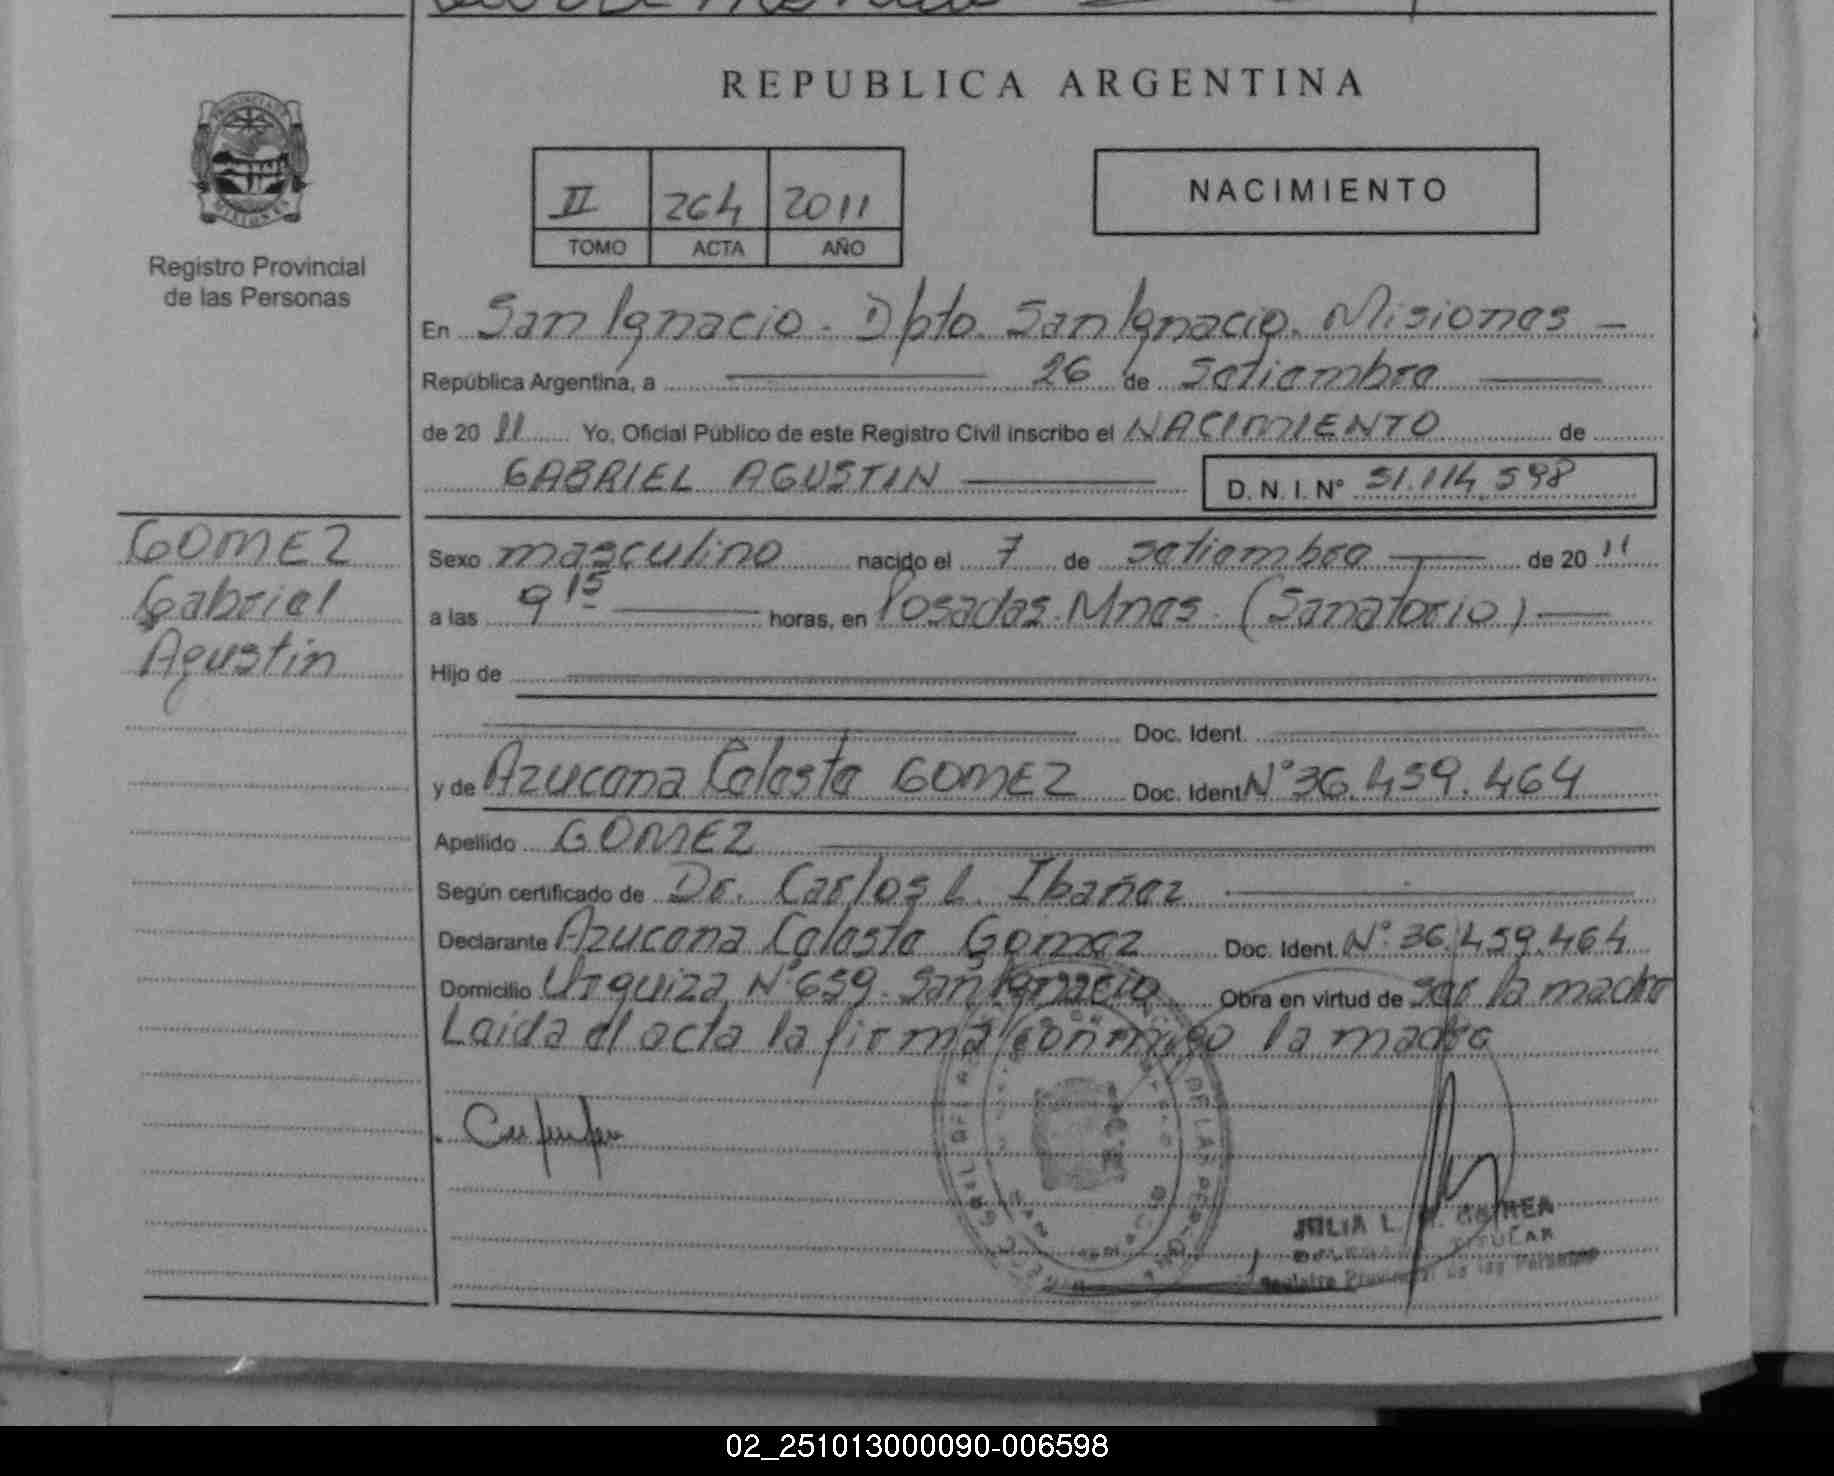 REPUBLICA ARGENTINA
Registro Provincial
de las Personas
II 264 2011
TOMO ACTA AÑO
NACIMIENTO
En San Ignacio. Dpto. San Ignacio. Misiones
República Argentina, a 26 de Setiembre
de 20 11 Yo, Oficial Público de este Registro Civil inscribo el NACIMIENTO de
GABRIEL AGUSTIN D. N. I. Nº 51.114.598
GOMEZ
Gabriel
Agustin
Sexo masculino nacido el 7 de setiembre de 20 11
a las 9 15 horas, en Posadas. Mnes. (Sanatorio)
Hijo de
Doc. Ident.
y de Azucena Celeste GOMEZ Doc. Ident Nº 36.459.464
Apellido GOMEZ
Según certificado de Dr. Carlos L. Ibañez
Declarante Azucena Celeste Gomez Doc. Ident. Nº 36.459.464
Domicilio Urquiza Nº 659. San Ignacio Obra en virtud de ser la madre
Leida el acta la firma conmigo la madre
JULIA L.
TITULAR
Registro Provincial de las Personas
02_251013000090-006598